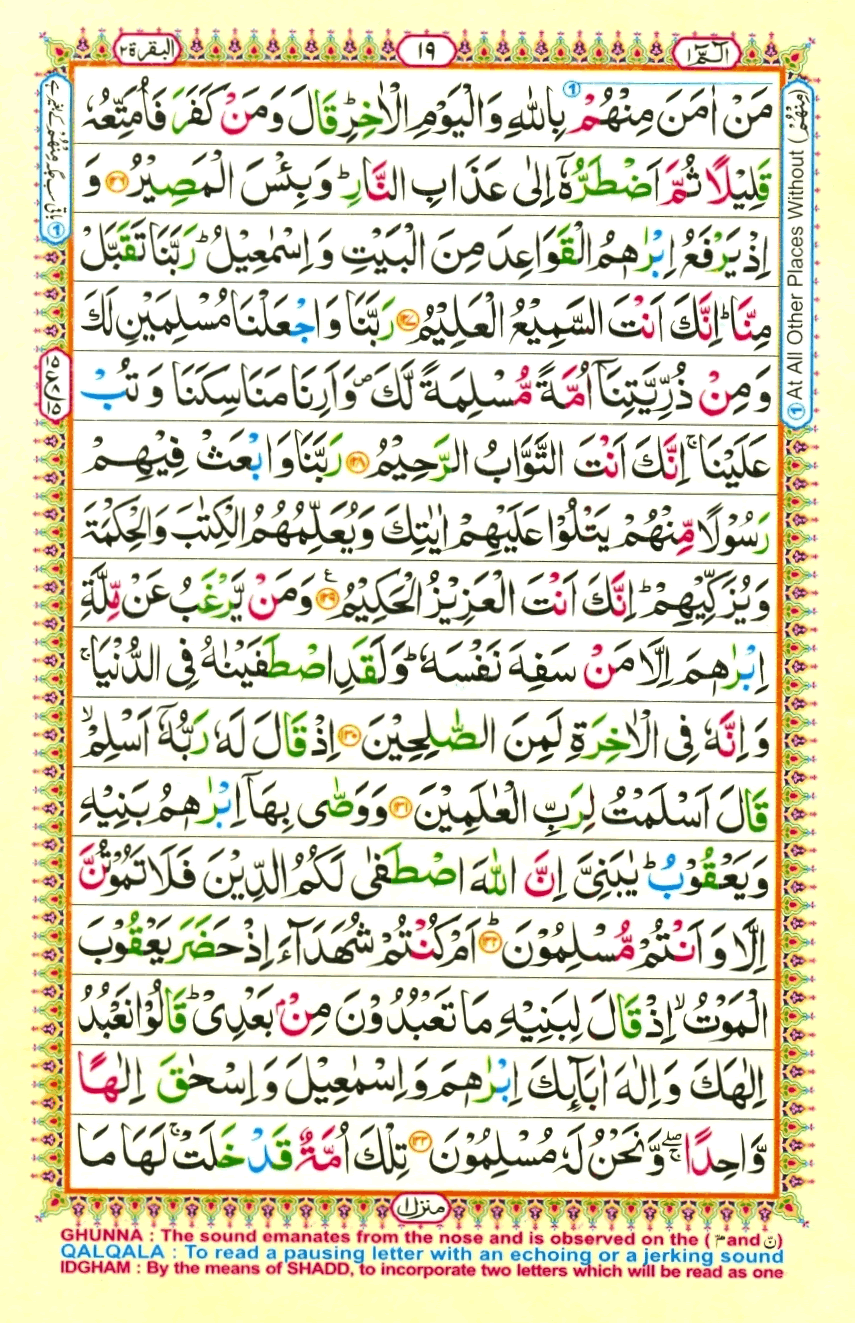 الٓمّٓ ١
١٩
البقرة ٢
مَنْ اٰمَنَ مِنْهُمْ بِاللّٰهِ وَالْیَوْمِ الْاٰخِرِ ؕ قَالَ وَمَنْ كَفَرَ فَاُمَتِّعُهٗ
قَلِیْلًا ثُمَّ اَضْطَرُّهٗۤ اِلٰی عَذَابِ النَّارِ ؕ وَبِئْسَ الْمَصِیْرُ ۝۱۲۶ وَ
اِذْ یَرْفَعُ اِبْرٰهٖمُ الْقَوَاعِدَ مِنَ الْبَیْتِ وَاِسْمٰعِیْلُ ؕ رَبَّنَا تَقَبَّلْ
مِنَّا ؕ اِنَّكَ اَنْتَ السَّمِیْعُ الْعَلِیْمُ ۝۱۲۷ رَبَّنَا وَاجْعَلْنَا مُسْلِمَیْنِ لَكَ
وَمِنْ ذُرِّیَّتِنَاۤ اُمَّةً مُّسْلِمَةً لَّكَ ۪ وَاَرِنَا مَنَاسِكَنَا وَتُبْ
عَلَیْنَا ۚ اِنَّكَ اَنْتَ التَّوَّابُ الرَّحِیْمُ ۝۱۲۸ رَبَّنَا وَابْعَثْ فِیْهِمْ
رَسُوْلًا مِّنْهُمْ یَتْلُوْا عَلَیْهِمْ اٰیٰتِكَ وَیُعَلِّمُهُمُ الْكِتٰبَ وَالْحِكْمَةَ
وَیُزَكِّیْهِمْ ؕ اِنَّكَ اَنْتَ الْعَزِیْزُ الْحَكِیْمُ ۝۱۲۹ ع وَمَنْ یَّرْغَبُ عَنْ مِّلَّةِ
اِبْرٰهٖمَ اِلَّا مَنْ سَفِهَ نَفْسَهٗ ؕ وَلَقَدِ اصْطَفَیْنٰهُ فِی الدُّنْیَا ۚ
وَاِنَّهٗ فِی الْاٰخِرَةِ لَمِنَ الصّٰلِحِیْنَ ۝۱۳۰ اِذْ قَالَ لَهٗ رَبُّهٗۤ اَسْلِمْ ۙ
قَالَ اَسْلَمْتُ لِرَبِّ الْعٰلَمِیْنَ ۝۱۳۱ وَوَصّٰی بِهَاۤ اِبْرٰهٖمُ بَنِیْهِ
وَیَعْقُوْبُ ؕ یٰبَنِیَّ اِنَّ اللّٰهَ اصْطَفٰی لَكُمُ الدِّیْنَ فَلَا تَمُوْتُنَّ
اِلَّا وَاَنْتُمْ مُّسْلِمُوْنَ ۝۱۳۲ ؕ اَمْ كُنْتُمْ شُهَدَآءَ اِذْ حَضَرَ یَعْقُوْبَ
الْمَوْتُ ۙ اِذْ قَالَ لِبَنِیْهِ مَا تَعْبُدُوْنَ مِنْۢ بَعْدِیْ ؕ قَالُوْا نَعْبُدُ
اِلٰهَكَ وَاِلٰهَ اٰبَآىِٕكَ اِبْرٰهٖمَ وَاِسْمٰعِیْلَ وَاِسْحٰقَ اِلٰهًا
وَّاحِدًا ۖۚ وَّنَحْنُ لَهٗ مُسْلِمُوْنَ ۝۱۳۳ تِلْكَ اُمَّةٌ قَدْ خَلَتْ ۚ لَهَا مَا
منزل ١
① At All Other Places Without (مِنْهُمْ)
باقی سب جگہ مِنْهُمْ کے بغیر ہے ①
GHUNNA : The sound emanates from the nose and is observed on the (مّ and نّ)
QALQALA : To read a pausing letter with an echoing or a jerking sound
IDGHAM : By the means of SHADD, to incorporate two letters which will be read as one